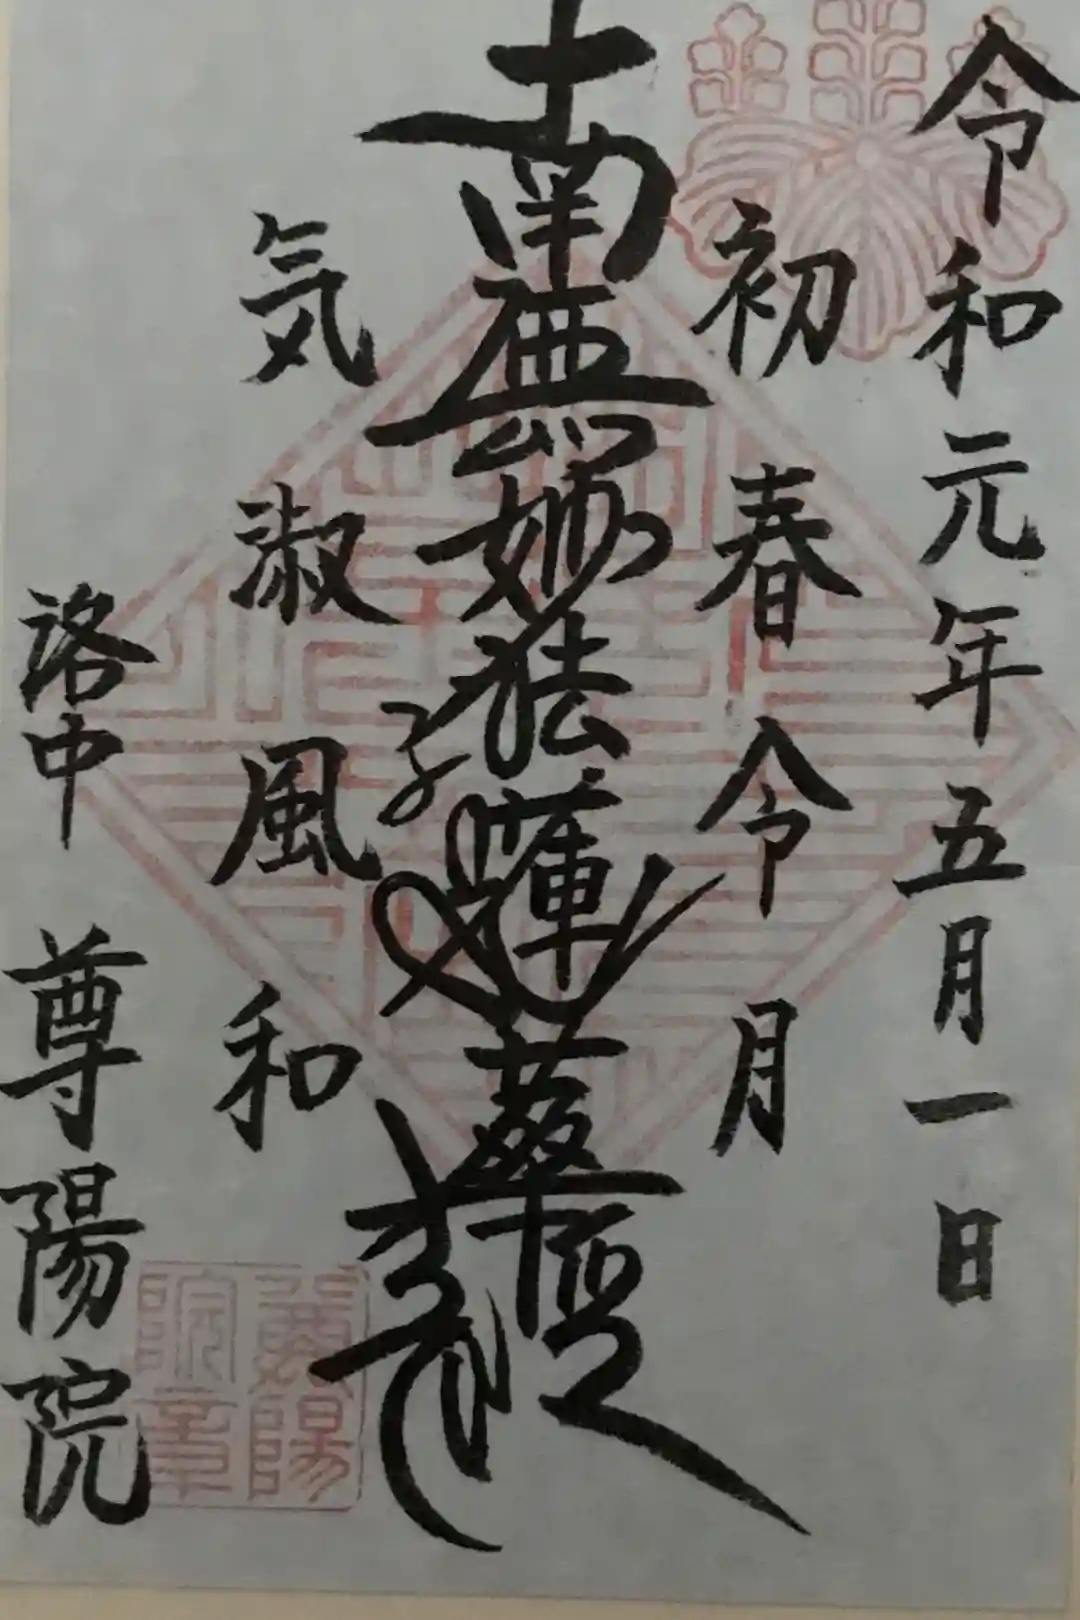 令和元年五月一日
初春令月
南無妙法蓮華経
気淑風和
洛中 尊陽院
尊陽院章